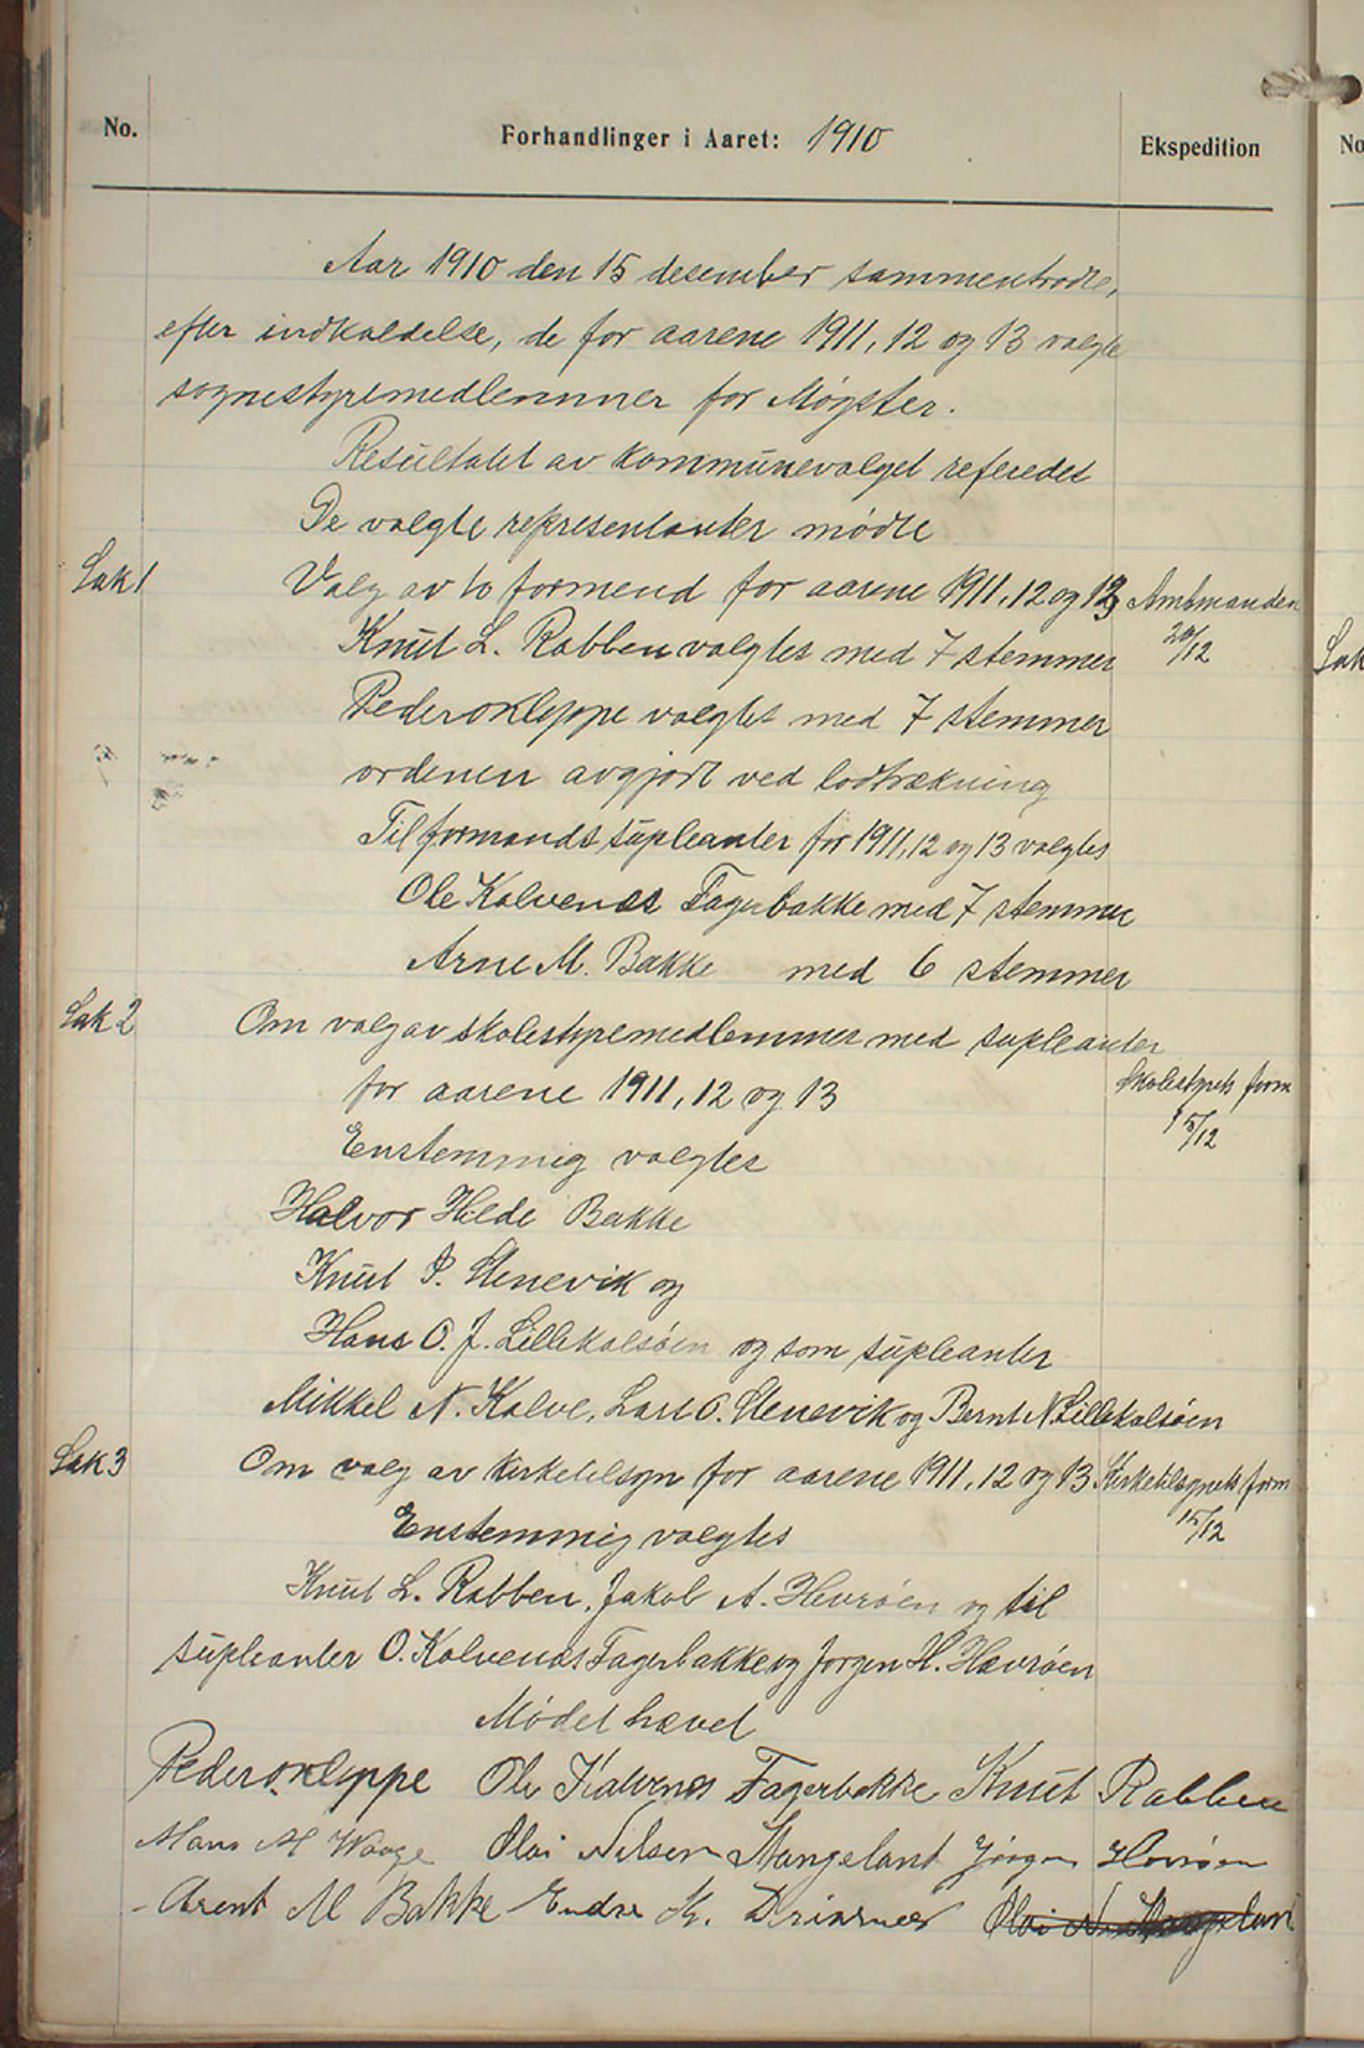 No.
Forhandlinger i Aaret: 1910
Ekspedition
No
Aar 1910 den 15 desember sammentrodte,
efter indkaldelse, de for aarene 1911, 12 og 13 valgte
sognestyremedlemmer for Møgster.
Resultatet av kommunevalget referedes
De valgte representanter mødte
Sak 1
Valg av to formend for aarene 1911, 12 og 13
Amtmanden
20/12
Knut L. Rabben valgtes med 7 stemmer
Sak
Peder O Kleppe valgtes med 7 stemmer
ordenen avgjort ved lodtrækning
Til formands supleanter for 1911, 12 og 13 valgtes
Ole Kalvenes Fagerbakke med 7 stemmer
Arne M. Bakke med 6 stemmer
Sak 2
Om valg av skolestyremedlemmer med supleanter
for aarene 1911, 12 og 13
Skolestyrets form
15/12
Enstemmig valgtes
Halvor Hilde Bakke
Knut P. Stenevik og
Hans O. J. Lillekalsøen og som supleanter
Mikkel N. Kalve, Lars O. Stenevik og Bernt N. Lillekalsøen
Sak 3
Om valg av kirketilsyn for aarene 1911, 12 og 13
Kirketilsynets form
15/12
Enstemmig valgtes
Knut L. Rabben, Jakob A. Hevrøen og til
supleanter O. Kalvenes Fagerbakke og Jørgen H. Hævrøen
Mødet hævet
Peder O. Kleppe Ole Kalvenes Fagerbakke Knut Rabben
Hans M Waage Olai Nilsen Stangeland Jørgen Hevrøen
Arent M Bakke Endre K. Drivenes Olai N Stangeland